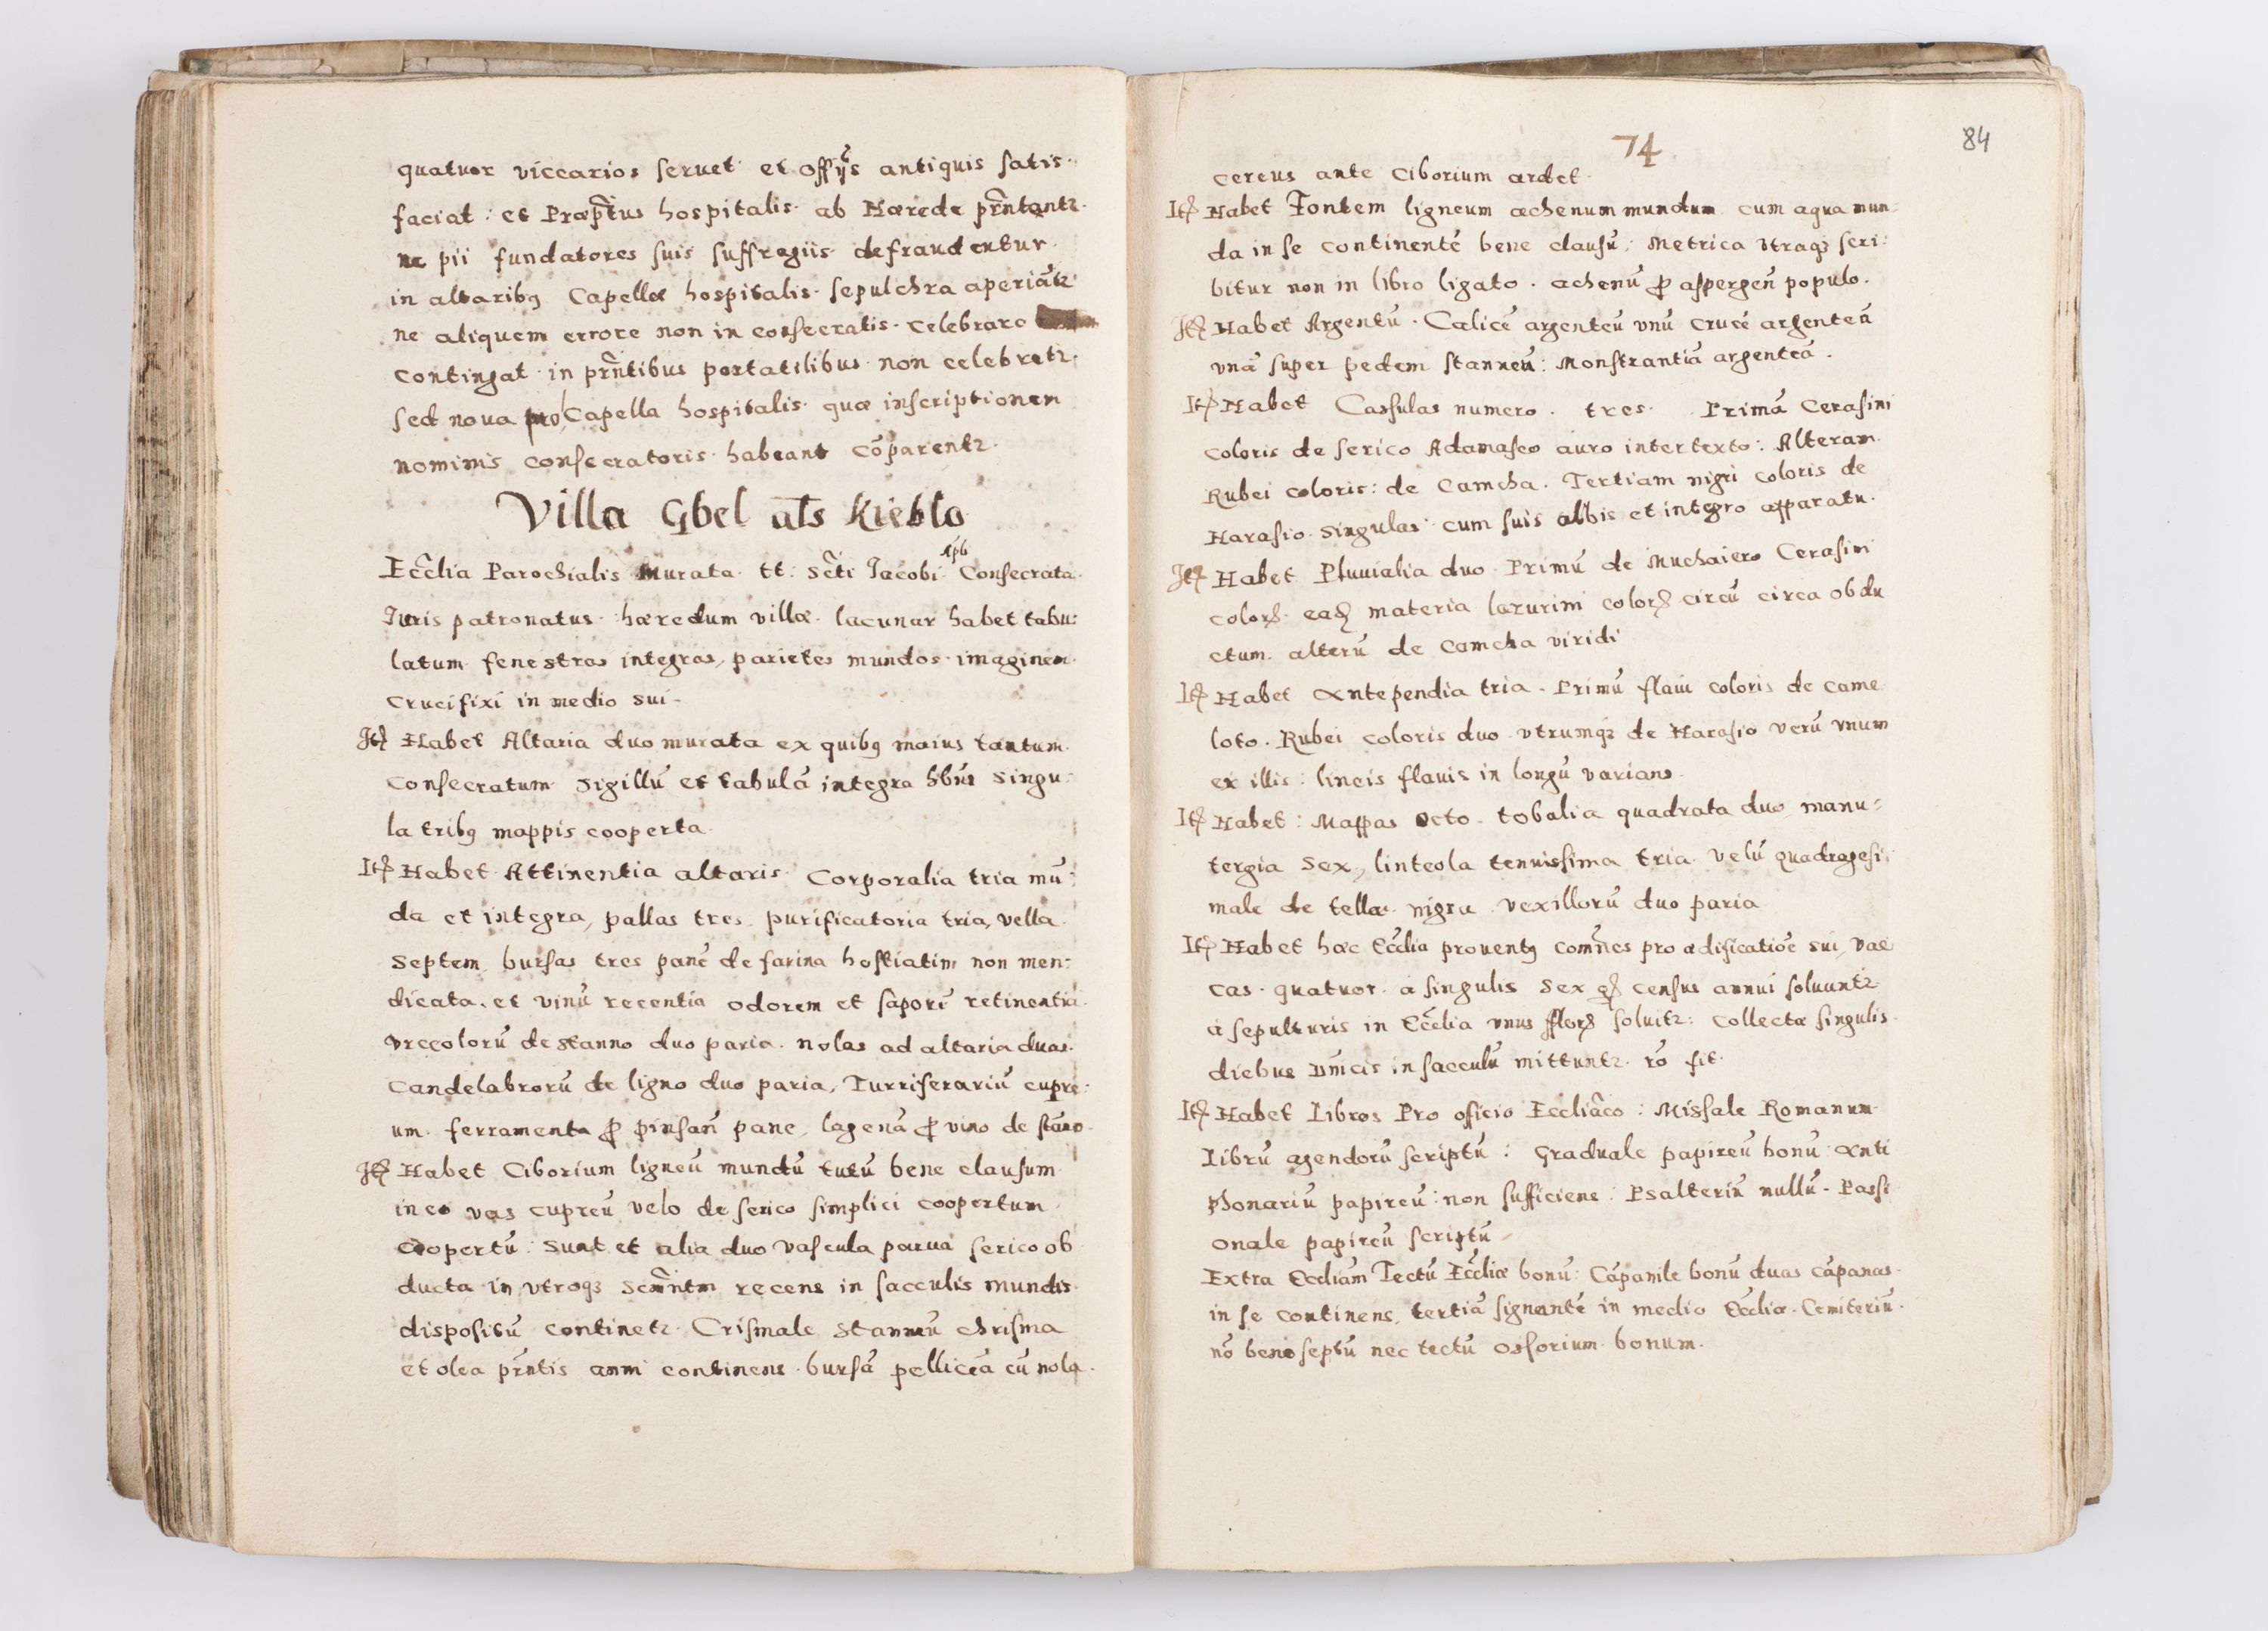 quatuor viccarios seruet et offijs antiquis satis
faciat: et Præptus hospitalis ab Hærede prntantr.
ne pii fundatores suis suffragiis defraudentur.
in altaribus Capellæ hospitalis sepulchra aperiãtr
ne aliquem errore non in consecratis celebrare
contingat in prñtibus portatilibus non celebretr.
sed noua pro Capella hospitalis quæ inscriptionem
nominis consecratoris habeant cõparentr.
Villa Gbel als Kiebło
Ecclia Parochialis Murata tt: Scti Jacobi Apli Consecrata.
Iuris patronatus hæredum villæ. lacunar habet tabu:
latum fenestras integras, parietes mundos imaginem
crucifixi in medio sui-
It Habet Altaria duo murata ex quibus maius tantum
consecratum Sigillũ et tabulã integra hñs singu:
la tribus mappis cooperta.
It Habet Attinentia altaris Corporalia tria mũ:
da et integra, pallas tres purificatoria tria, vella
septem bursas tres panẽ de farina hostiatim non men:
dicata. et vinũ recentia odorem et saporẽ retinentia.
vrceolorũ de stanno duo paria. nolas ad altaria duas.
candelabrorũ de ligno duo paria, Turriferariũ cupre:
um. ferramenta p pinsan pane, lagenã p vino de stãno.
It Habet Ciborium ligneũ mundũ tutũ bene clausum
in eo vas cupreũ velo de serico simplici coopertum
coopertũ: sunt et alia duo vascula parua serico ob
ducta in vtroq scrmntm recens in sacculis mundis
dispositũ continetr. Crismale stanneũ chrisma
et olea prñtis anni continens. bursã pelliceã cũ nola.
74
84
cereus ante Ciborium ardet.
It Habet Fontem ligneum achenum mundum cum aqua mun:
da in se continentẽ bene clausũ: Metrica vtraq scri:
bitur non in libro ligato. achenũ p aspergen populo.
It Habet Argentũ. Calicẽ argenteũ vnũ crucẽ argenteã
vnã super pedem stanneũ: Monstrantiã argenteã.
It Habet Cassulas numero. tres. Primã Cerasini
coloris de serico Adamasco auro intertexto: Alteram
Rubei coloris: de Camcha. Tertiam nigri coloris de
Harasio singulas cum suis albis et integro apparatu.
It Habet Pluuialia duo Primũ de Muchaiero Cerasini
colors. ead materia lazurini colors circũ circa obdu
ctum. alterũ de Camcha viridi
It Habet Antependia tria. Primũ flaui coloris de came
loto. Rubei coloris duo vtrumq de Harasio verũ vnum
ex illis: lineis flauis in longũ varians.
It Habet: Mappas octo. tobalia quadrata duo manu:
tergia sex, linteola tenuissima tria. velũ quadragesi:
male de tella nigra vexillorũ duo paria
It Habet hæc Ecclia prouentus comnes pro ædificatiõe sui, vac
cas quatuor a singulis sex gs census annui soluuntr.
a sepulturis in Ecclia vnus flors soluitr: collectæ singulis
diebus Dnicis in sacculũ mittuntr. rõ fit.
It Habet Libros Pro officio Eccliãco: Missale Romanum
Librũ agendorũ scriptũ: Graduale papireũ bonũ Anti
phonariũ papireũ: non sufficiens: Psalteriũ nullũ. Passi
onale papireũ scriptũ
Extra Eccliam Tectũ Eccliæ bonũ: Cãpanile bonũ duas cãpanas.
in se continens, tertiã signantẽ in medio Eccliæ. Cemiteriũ.
nõ bene septũ nec tectũ ossorium bonum.